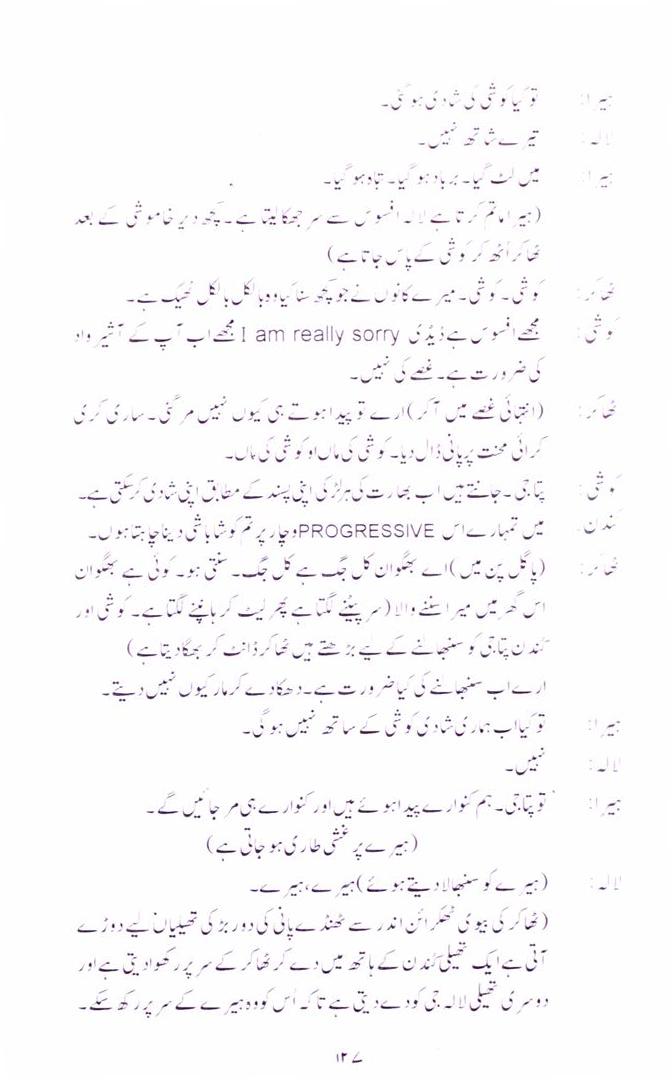 ہیرا: تو کیا کوشی کی شادی ہو گئی۔
لالہ: تیرے ساتھ نہیں۔
ہیرا: میں لٹ گیا۔ برباد ہو گیا۔ تباہ ہو گیا۔
(ہیرا ماتم کرتا ہے لالہ افسوس سے سر جھکا لیتا ہے۔ کچھ دیر خاموشی کے بعد
ٹھاکر اُٹھ کر کوشی کے پاس جاتا ہے)
ٹھاکر: کوشی۔ کوشی۔ میرے کانوں نے جو کچھ سنا کیا وہ بالکل بالکل ٹھیک ہے۔
کوشی: مجھے افسوس ہے ڈیڈی I am really sorry مجھے اب آپ کے آشیرواد
کی ضرورت ہے۔ غصے کی نہیں۔
ٹھاکر: (انتہائی غصے میں آکر) ارے تو پیدا ہوتے ہی کیوں نہیں مر گئی۔ ساری کری
کرائی محنت پر پانی ڈال دیا۔ کوشی کی ماں او کوشی کی ماں۔
کوشی: پتاجی۔ جانتے ہیں اب بھارت کی ہر لڑکی اپنی پسند کے مطابق اپنی شادی کر سکتی ہے۔
کندن: میں تمہارے اس PROGRESSIVE وچار پر تم کو شاباشی دینا چاہتا ہوں۔
ٹھاکر: (پاگل پن میں) اے بھگوان کل جگ ہے کل جگ۔ سنتی ہو۔ کوئی ہے بھگوان
اس گھر میں میرا سننے والا (سر پیٹنے لگتا ہے پھر لیٹ کر ہانپنے لگتا ہے۔ کوشی اور
کندن پتاجی کو سنبھالنے کے لیے بڑھتے ہیں ٹھاکر ڈانٹ کر بھگا دیتا ہے)
ارے اب سنبھالنے کی کیا ضرورت ہے۔ دھکا دے کر مار کیوں نہیں دیتے۔
ہیرا: تو کیا اب ہماری شادی کوشی کے ساتھ نہیں ہو گی۔
لالہ: نہیں۔
ہیرا: تو پتاجی۔ ہم کنوارے پیدا ہوئے ہیں اور کنوارے ہی مر جائیں گے۔
(ہیرے پر غشی طاری ہو جاتی ہے)
لالہ: (ہیرے کو سنبھالا دیتے ہوئے) ہیرے، ہیرے۔
(ٹھاکر کی بیوی ٹھکرائن اندر سے ٹھنڈے پانی کی دو ربڑ کی تھیلیاں لیے دوڑے
آتی ہے ایک تھیلی کندن کے ہاتھ میں دے کر ٹھاکر کے سر پر رکھوا دیتی ہے اور
دوسری تھیلی لالہ جی کو دے دیتی ہے تاکہ اُس کو وہ ہیرے کے سر پر رکھ سکے۔
۱۲۷